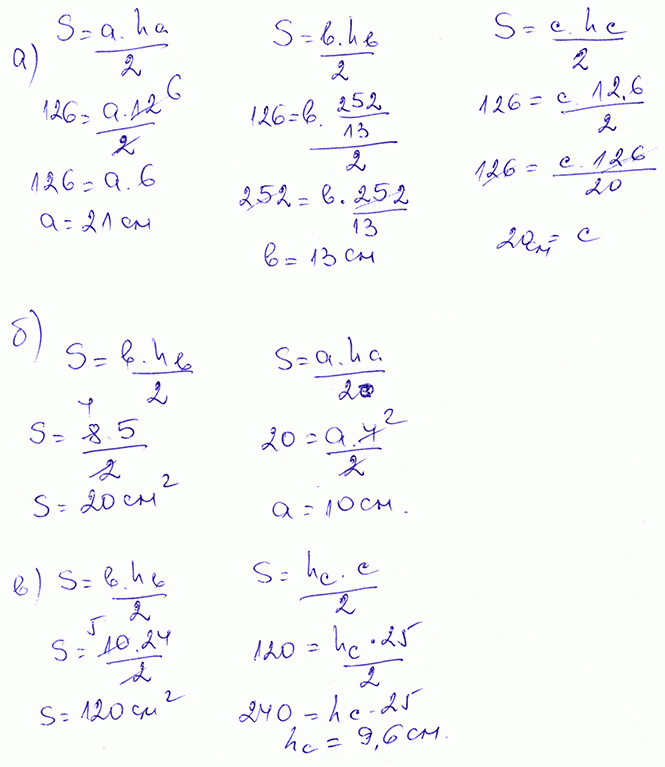 а)
S = a . ha / 2
126 = a . 12 6 / 2
126 = a . 6
a = 21 см
S = в . hв / 2
126 = в . 252/13 / 2
252 = в . 252 / 13
в = 13 см
S = c . hc / 2
126 = c . 12,6 / 2
126 = c . 126 / 20
20 см = c
б)
S = в . hв / 2
4
S = 8 . 5 / 2
S = 20 см²
S = a . ha / 2
20 = a . 4 2 / 2
a = 10 см.
в)
S = в . hв / 2
5
S = 10 . 24 / 2
S = 120 см²
S = hc . c / 2
120 = hc . 25 / 2
240 = hc . 25
hc = 9,6 см.